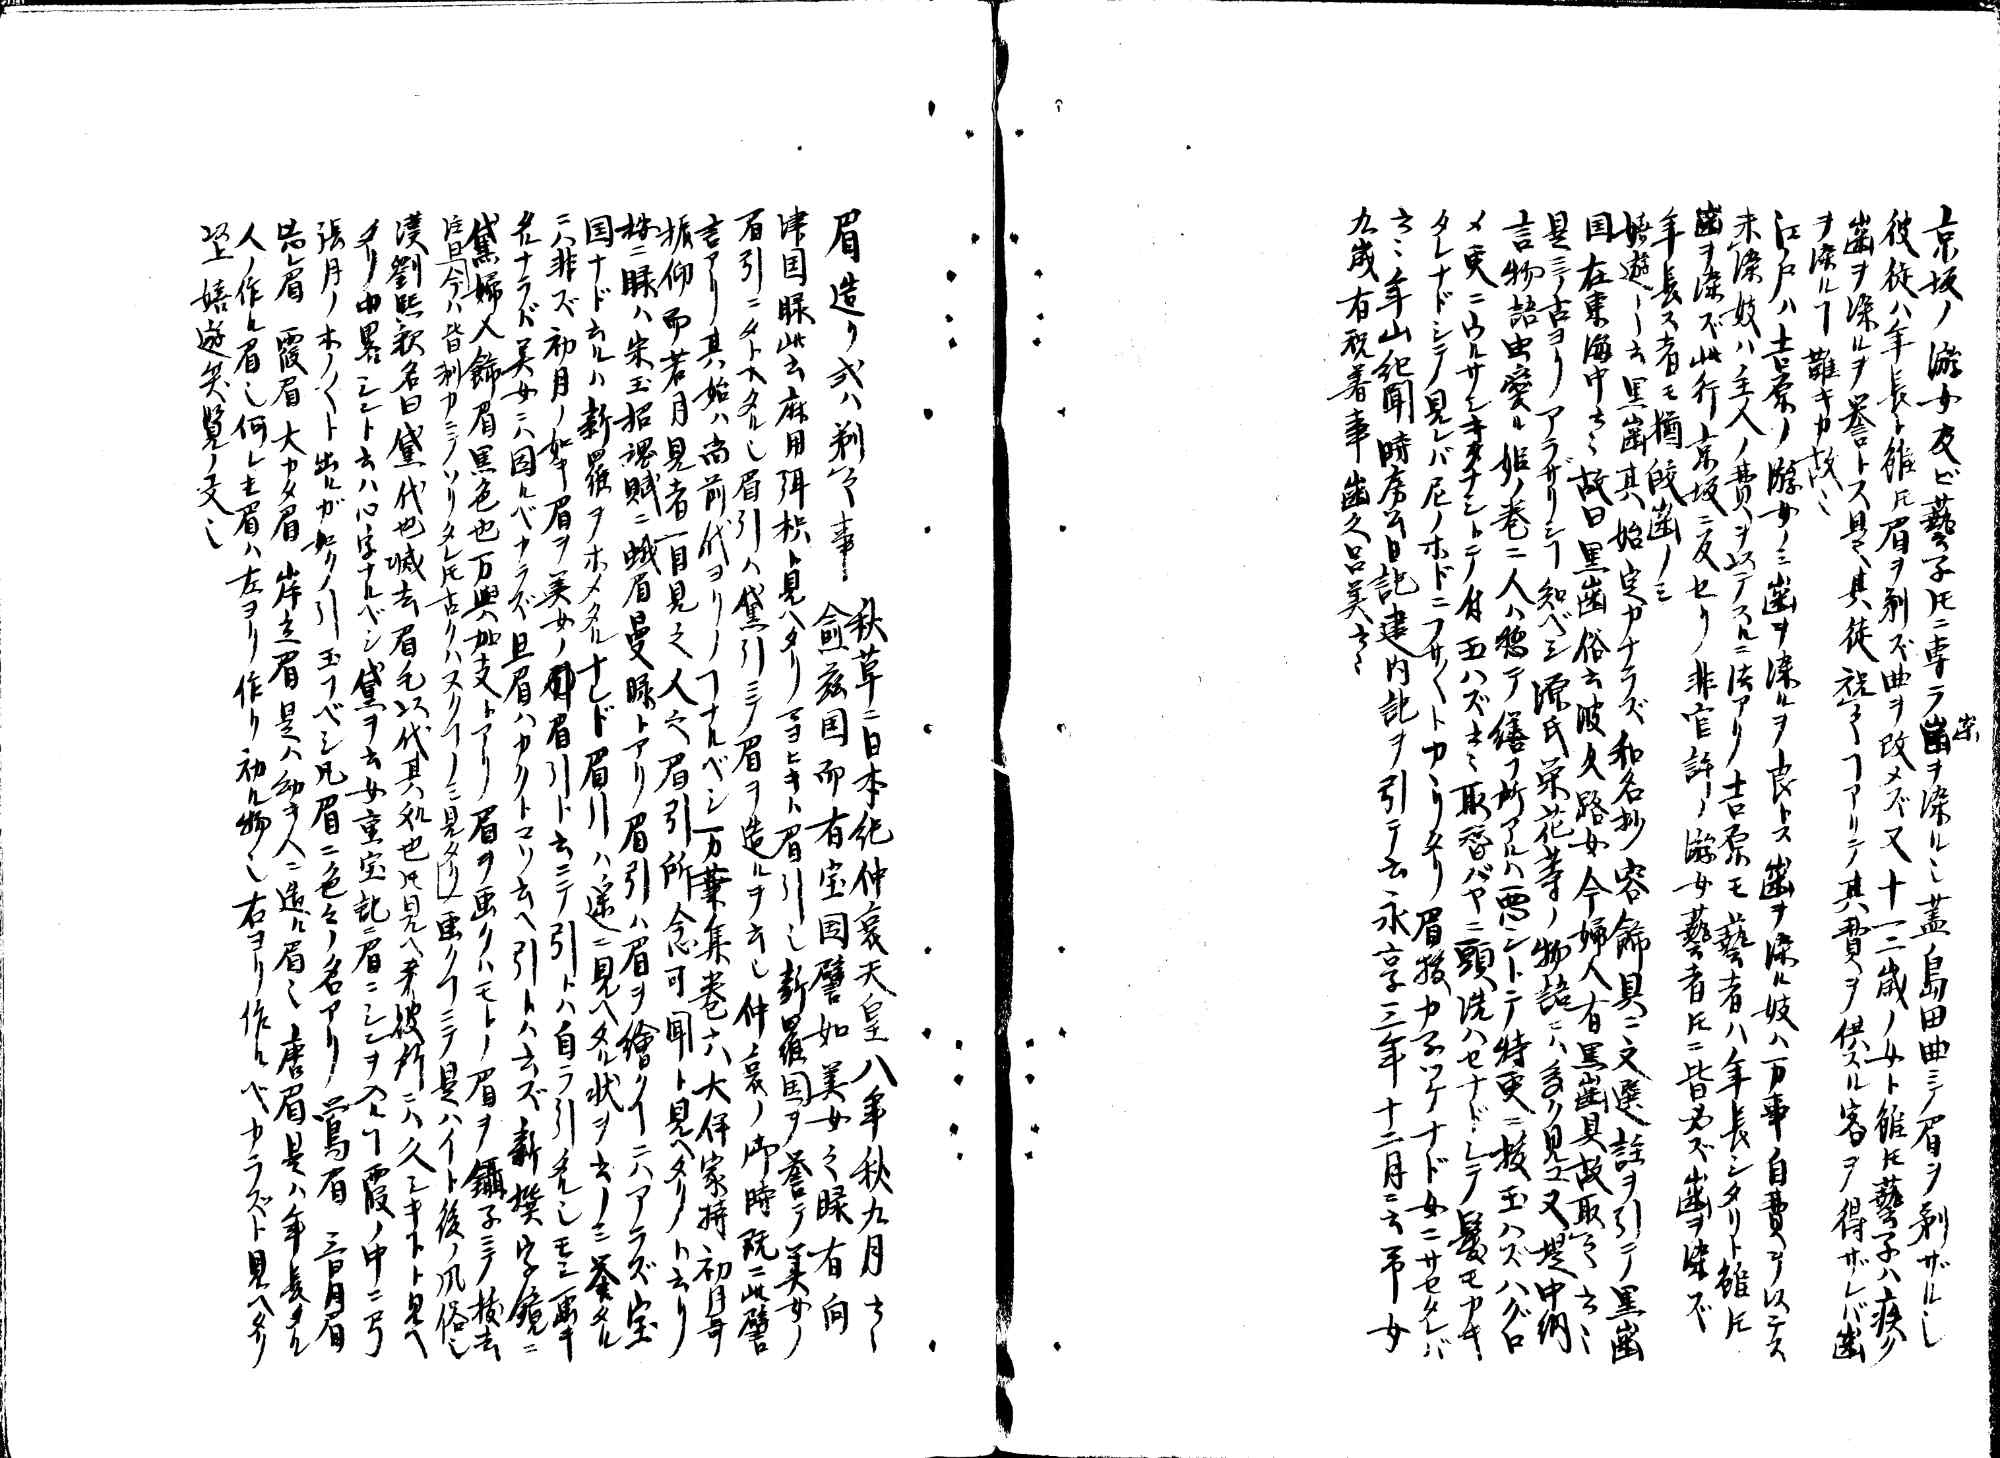 京坂ノ游女及ビ藝子㞮ニ専ラ歯ヲ染ル也蓋島田曲ニテ眉ヲ剃ザル也
彼徒ハ年長ト雖㞮眉ヲ剃ズ曲ヲ改メズ又十一二歳ノ女ト雖㞮藝子ハ疾ク
歯ヲ染ルヲ誉トス是其徒祝之ヿアリテ其費ヲ供スル客ヲ得ザレバ歯
ヲ染ルヿ難キカ故也
江戸ハ吉原ノ游女ノミ歯ヲ染ルヲ良トス歯ヲ染ル妓ハ万事自費ヲ以テス
未染妓ハ主人ノ費ヲ以テスルニ法アリ吉原モ藝者ハ年長シタリト雖㞮
歯ヲ染ズ此行京坂ニ反セリ非官許ノ游女藝者㞮ニ皆必ズ歯ヲ染ズ
年長ス者モ猶皎歯ノミ
嬉遊ーー云黒歯其始定カナラズ和名抄容飾具ニ文選註ヲ引テ黒歯
国在東海中云々故曰黒歯俗云波久路女今婦人有黒歯具故取之云々
是ニテ古ヨリアラザリシヿ知ベシ源氏栄花等ノ物語ニハ多ク見ユ又堤中納
言物語虫愛ル姫ノ巻ニ人ハ惣テ繕フ所アルハ悪シトテ特更ニ抜玉ハズハグロ
メ更ニウルサシキタナシトテ付玉ハズ云々取替バヤニ頭洗ハセナドシテ髪モカキ
タレナドシテ見レバ尼ノホドニフサ〱トカヽリタリ眉抜カネツケナド女ニサセタレバ
云々年山紀聞時房公日記建内記ヲ引テ云永享三年十二月ニ云第女
九歳有祝着事歯久呂美云々
眉造リ或ハ剃之事　秋草ニ日本紀仲哀天皇八年秋九月云々
愈茲国而有宝国譬如美女之睩有向
津国睩此云麻用弭枳ト見ヘタリマヨヒキハ眉引也新羅国ヲ誉テ美女ノ
眉引ニタトヘタル也眉引ハ黛引ニテ眉ヲ造ルヲ云也仲哀ノ御時既ニ此譬
言アリ其始ハ尚前代ヨリノヿナルベシ万葉集巻六大伴家持初月哥
振仰而若月見者一目見之人之眉引所念可聞ト見ヘタリト云リ
按ニ睩ハ宋玉招魂賦ニ蛾眉曼睩トアリ眉引ハ眉ヲ繪クーニハアラズ宝
国ナド云ルハ新羅ヲホメタルナレド眉引ハ遙ニ見ヘタル状ヲ云ノミ誉タル
ニハ非ズ初月ノ如キ眉ヲ美女ノ眉引ド云ニテ引トハ自ラ引タル也モシ画キ
タルナラバ美女ニハ因ルベカラズ且眉ハカクトコソ云ヘ引トハ云ズ新撰字鏡ニ
黛婦人飾眉黒色也万輿加支トアリ眉ヲ画クハモトノ眉ヲ鑷子ニテ抜去
注旦今ハ皆剃カミソリタレ㞮古クハヌクヿノミ見タリ画クヿニテ是ハイト後ノ風俗也
漢劉熙釈名曰黛代也滅去眉毛以代其処也㞮見ヘ来彼所ニハ久シキヿト見ヘ
タリ中畧シント云ハ心字ナルベシ黛ヲ云女重宝記ニ眉ニシンヲ入ルヿ霞ノ中ニ弓
張月ノホノ〱ト出ルガ如ク引玉フベシ凡眉ニ色々ノ名アリ鴬眉　三日月眉
忘レ眉　霞眉　大カタ眉　岸立眉是ハ幼キ人ニ造ル眉也唐眉是ハ年長タル
人ノ作ル眉也何レモ眉ハ左ヨリ作リ初ル物也右ヨリ作ルベカラズト見ヘタリ
以上嬉遊笑覧ノ文也